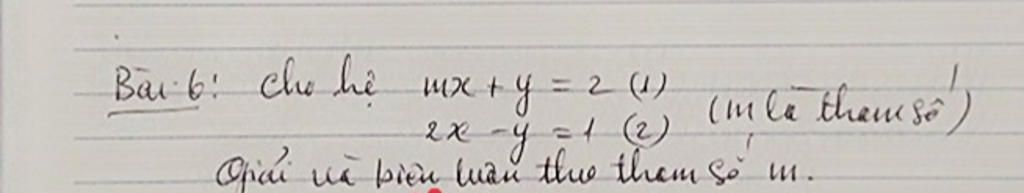 Bài 6: Cho hệ mx + y = 2 (1)
2x - y = 1 (2) (m là tham số)
Giải và biện luận theo tham số m.